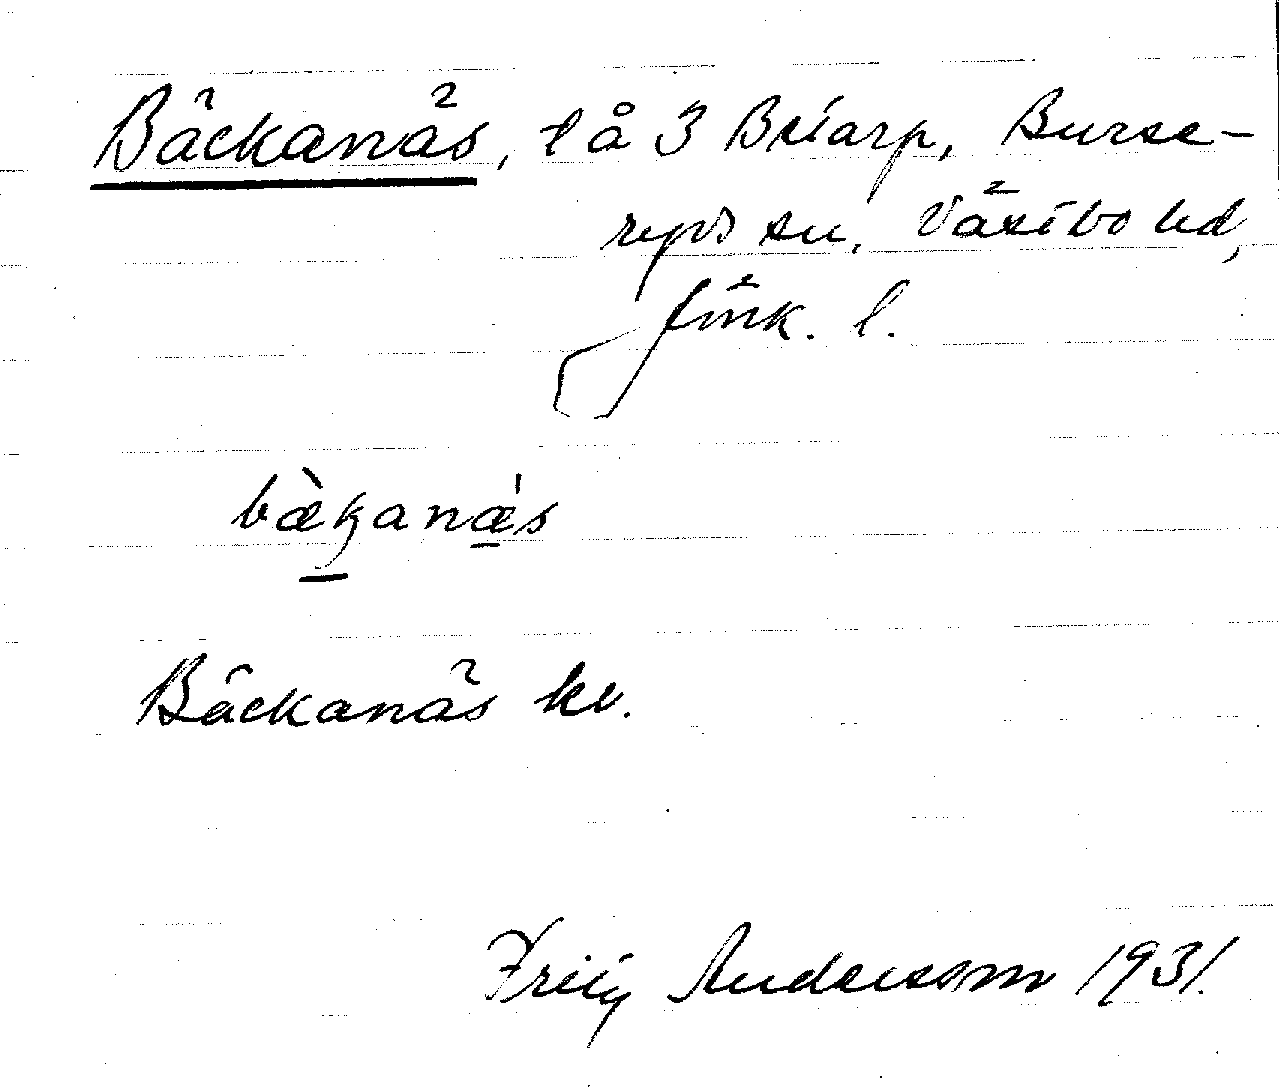 Bäckanäs, l å 3 Briarp, Burse-
ryds sn. Västbo hd,
Jönk. l.
bæ̀kanæ´s
Bäckanäs kv.
Andersson 1931.